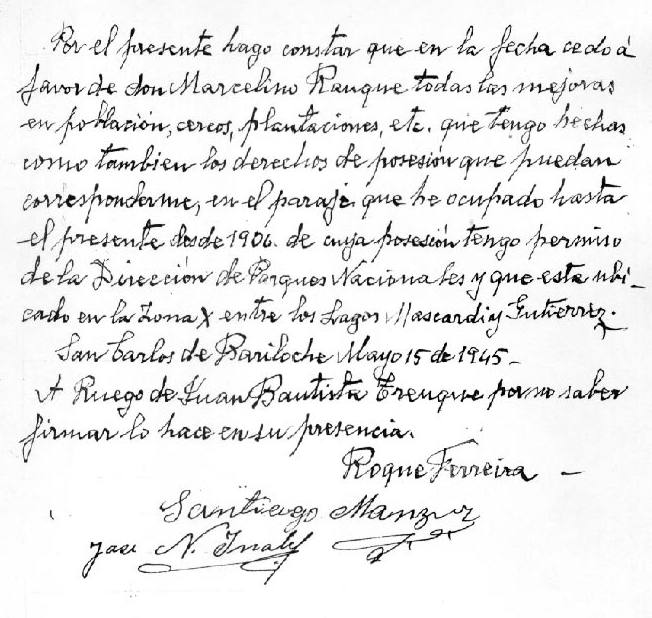 Por el presente hago constar que en la fecha cedo á
favor de don Marcelino Ranque todas las mejoras
en población, cercos, plantaciones, etc. que tengo hechas
como tambien los derechos de posesión que puedan
corresponderme, en el paraje que he ocupado hasta
el presente desde 1906. de cuya posesión tengo permiso
de la Dirección de Parques Nacionales y que esta ubi-
cado en la Zona X entre los Lagos Mascardi y Gutierrez.
San Carlos de Bariloche Mayo 15 de 1945-
A Ruego de Juan Bautista Trenque por no saber
firmar lo hace en su presencia.
Roque Ferreira -
Santiago Manzur
N.